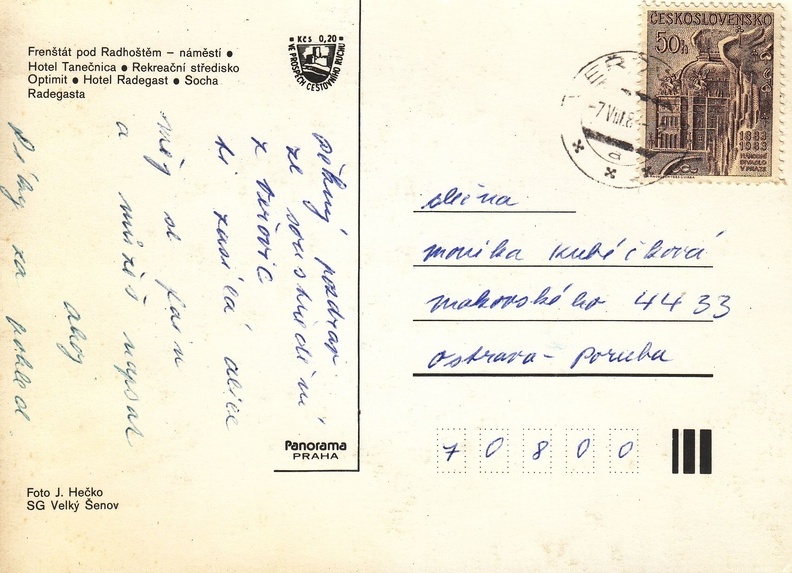 Frenštát pod Radhoštěm – náměstí ●
Hotel Tanečnica ● Rekreační středisko
Optimit ● Hotel Radegast ● Socha
Radegasta
Kčs 0,20
VE PROSPĚCH CESTOVNÍHO RUCHU
pěkný pozdrav
ze soustředění
z Veřovic
ti zasílá alice
měj se fajn
a můžeš napsat
ahoj
Díky za pohled
Panorama
PRAHA
Foto J. Hečko
SG Velký Šenov
ČESKOSLOVENSKO
50h
1883
1983
NÁRODNÍ
DIVADLO
V PRAZE
-7.VIII.8
a
slečna
monika Kubéčková
makovského 4433
ostrava - Poruba
7 0 8 0 0